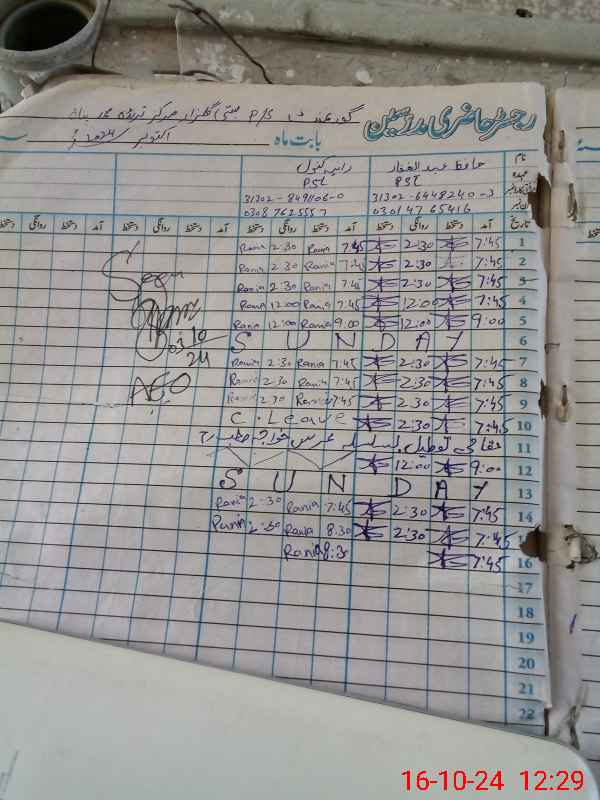 رجسٹر حاضری مدرسین
گورنمنٹ P/S بستی گلزار مرکز
بابت ماہ اکتوبر 2024ء
نام حافظ عبدالغفار رابیل کنول
عہدہ PST PST
31302-6448240-3 31302-8491106-0
0301 47 65416 0308 7625557
تاریخ آمد دستخط روانگی دستخط آمد دستخط روانگی دستخط آمد دستخط روانگی دستخط
1 7:45 2:30 7:45 Rania 2:30 Rania
2 2:30 7:45 Rania 2:30 Rania
3 7:45 2:30 7:45 Rania 2:30 Rania
4 7:45 12:00 7:45 Rania 12:00 Rania
5 9:00 12:00 9:00 Rania 12:00 Rania
6 SUNDAY
7 7:45 2:30 7:45 Rania 2:30 Rania
8 7:45 2:30 7:45 Rania 2:30 Rania
9 7:45 2:30 7:45 Rania 2:30 Rania
10 7:45 2:30 C. Leave
11 مقامی تعطیل بسلسلہ عرس خواجہ
12 9:00 12:00
13 SUNDAY
14 7:45 2:30 7:45 Rania 2:30 Rania
15 7:45 2:30 8:30 Rania 2:30 Rania
16 7:45 8:30 Rania
17
18
19
20
21
22
Seen
10
24
AEO
16-10-24 12:29